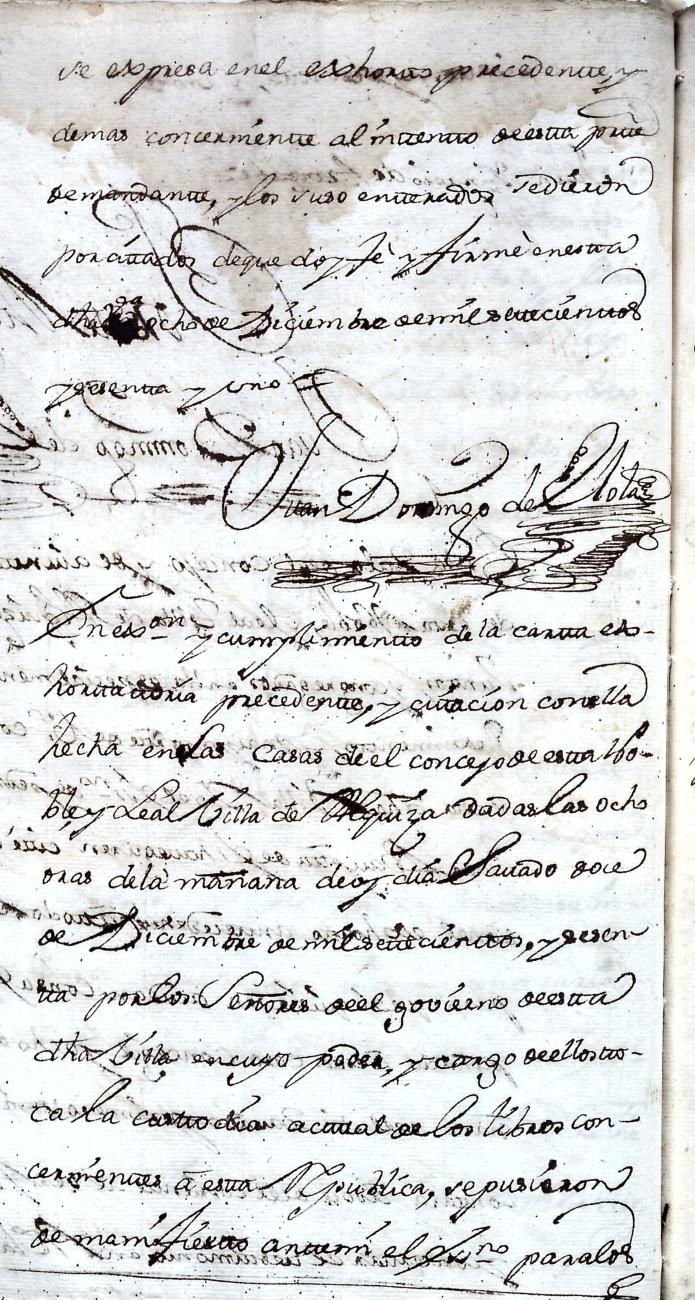 se expresa enel exhorto precedente, y
demas concerniente al intento de esta parte
demandante, y los suso enterados se dieron
por citados de que doy fè y firmè en esta
dha ocho de Diciembre de mil setecientos
y sesenta y uno
Juan Domingo de Llola
En exon y cumplimiento de la carta ex-
hortatoria precedente, y citacion con ella
hecha en las Casas de el concejo de esta No-
ble, y Leal Villa de Alquiza dadas las ocho
oras de la mañana de oy dia Savado doce
de Diciembre de mil setecientos, y sesen-
ta por los Señores de el govierno de esta
dha Villa en cuyo poder, y cargo de ellos to-
ca la custodia actual de los libros con-
cernientes à esta Republica, se pusieron
de manifiesto ante mi el Esno para los